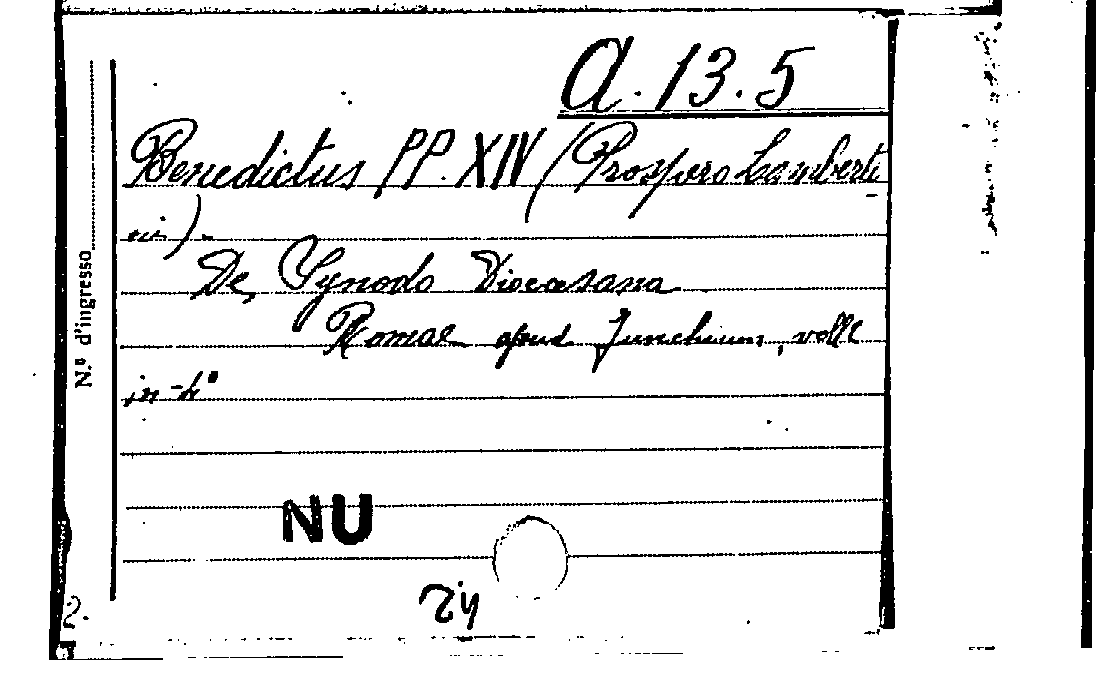 A. 13. 5
Benedictus PP. XIV (Prospero Lamberti
ni).
De Synodo Diocesana
Romae apud Junchium, voll 2
in-4°
N.° d'ingresso
NU
2.